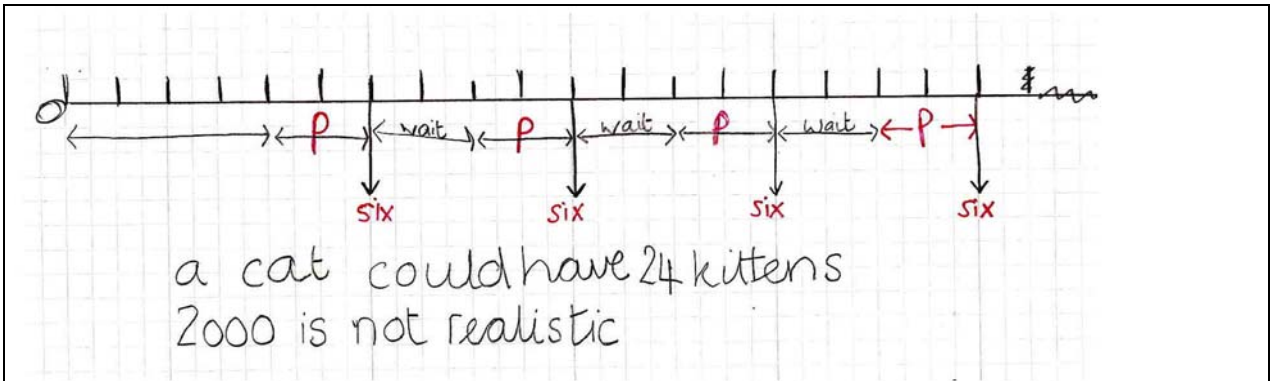 0
p wait p wait p wait p
six six six six
a cat could have 24 kittens
2000 is not realistic